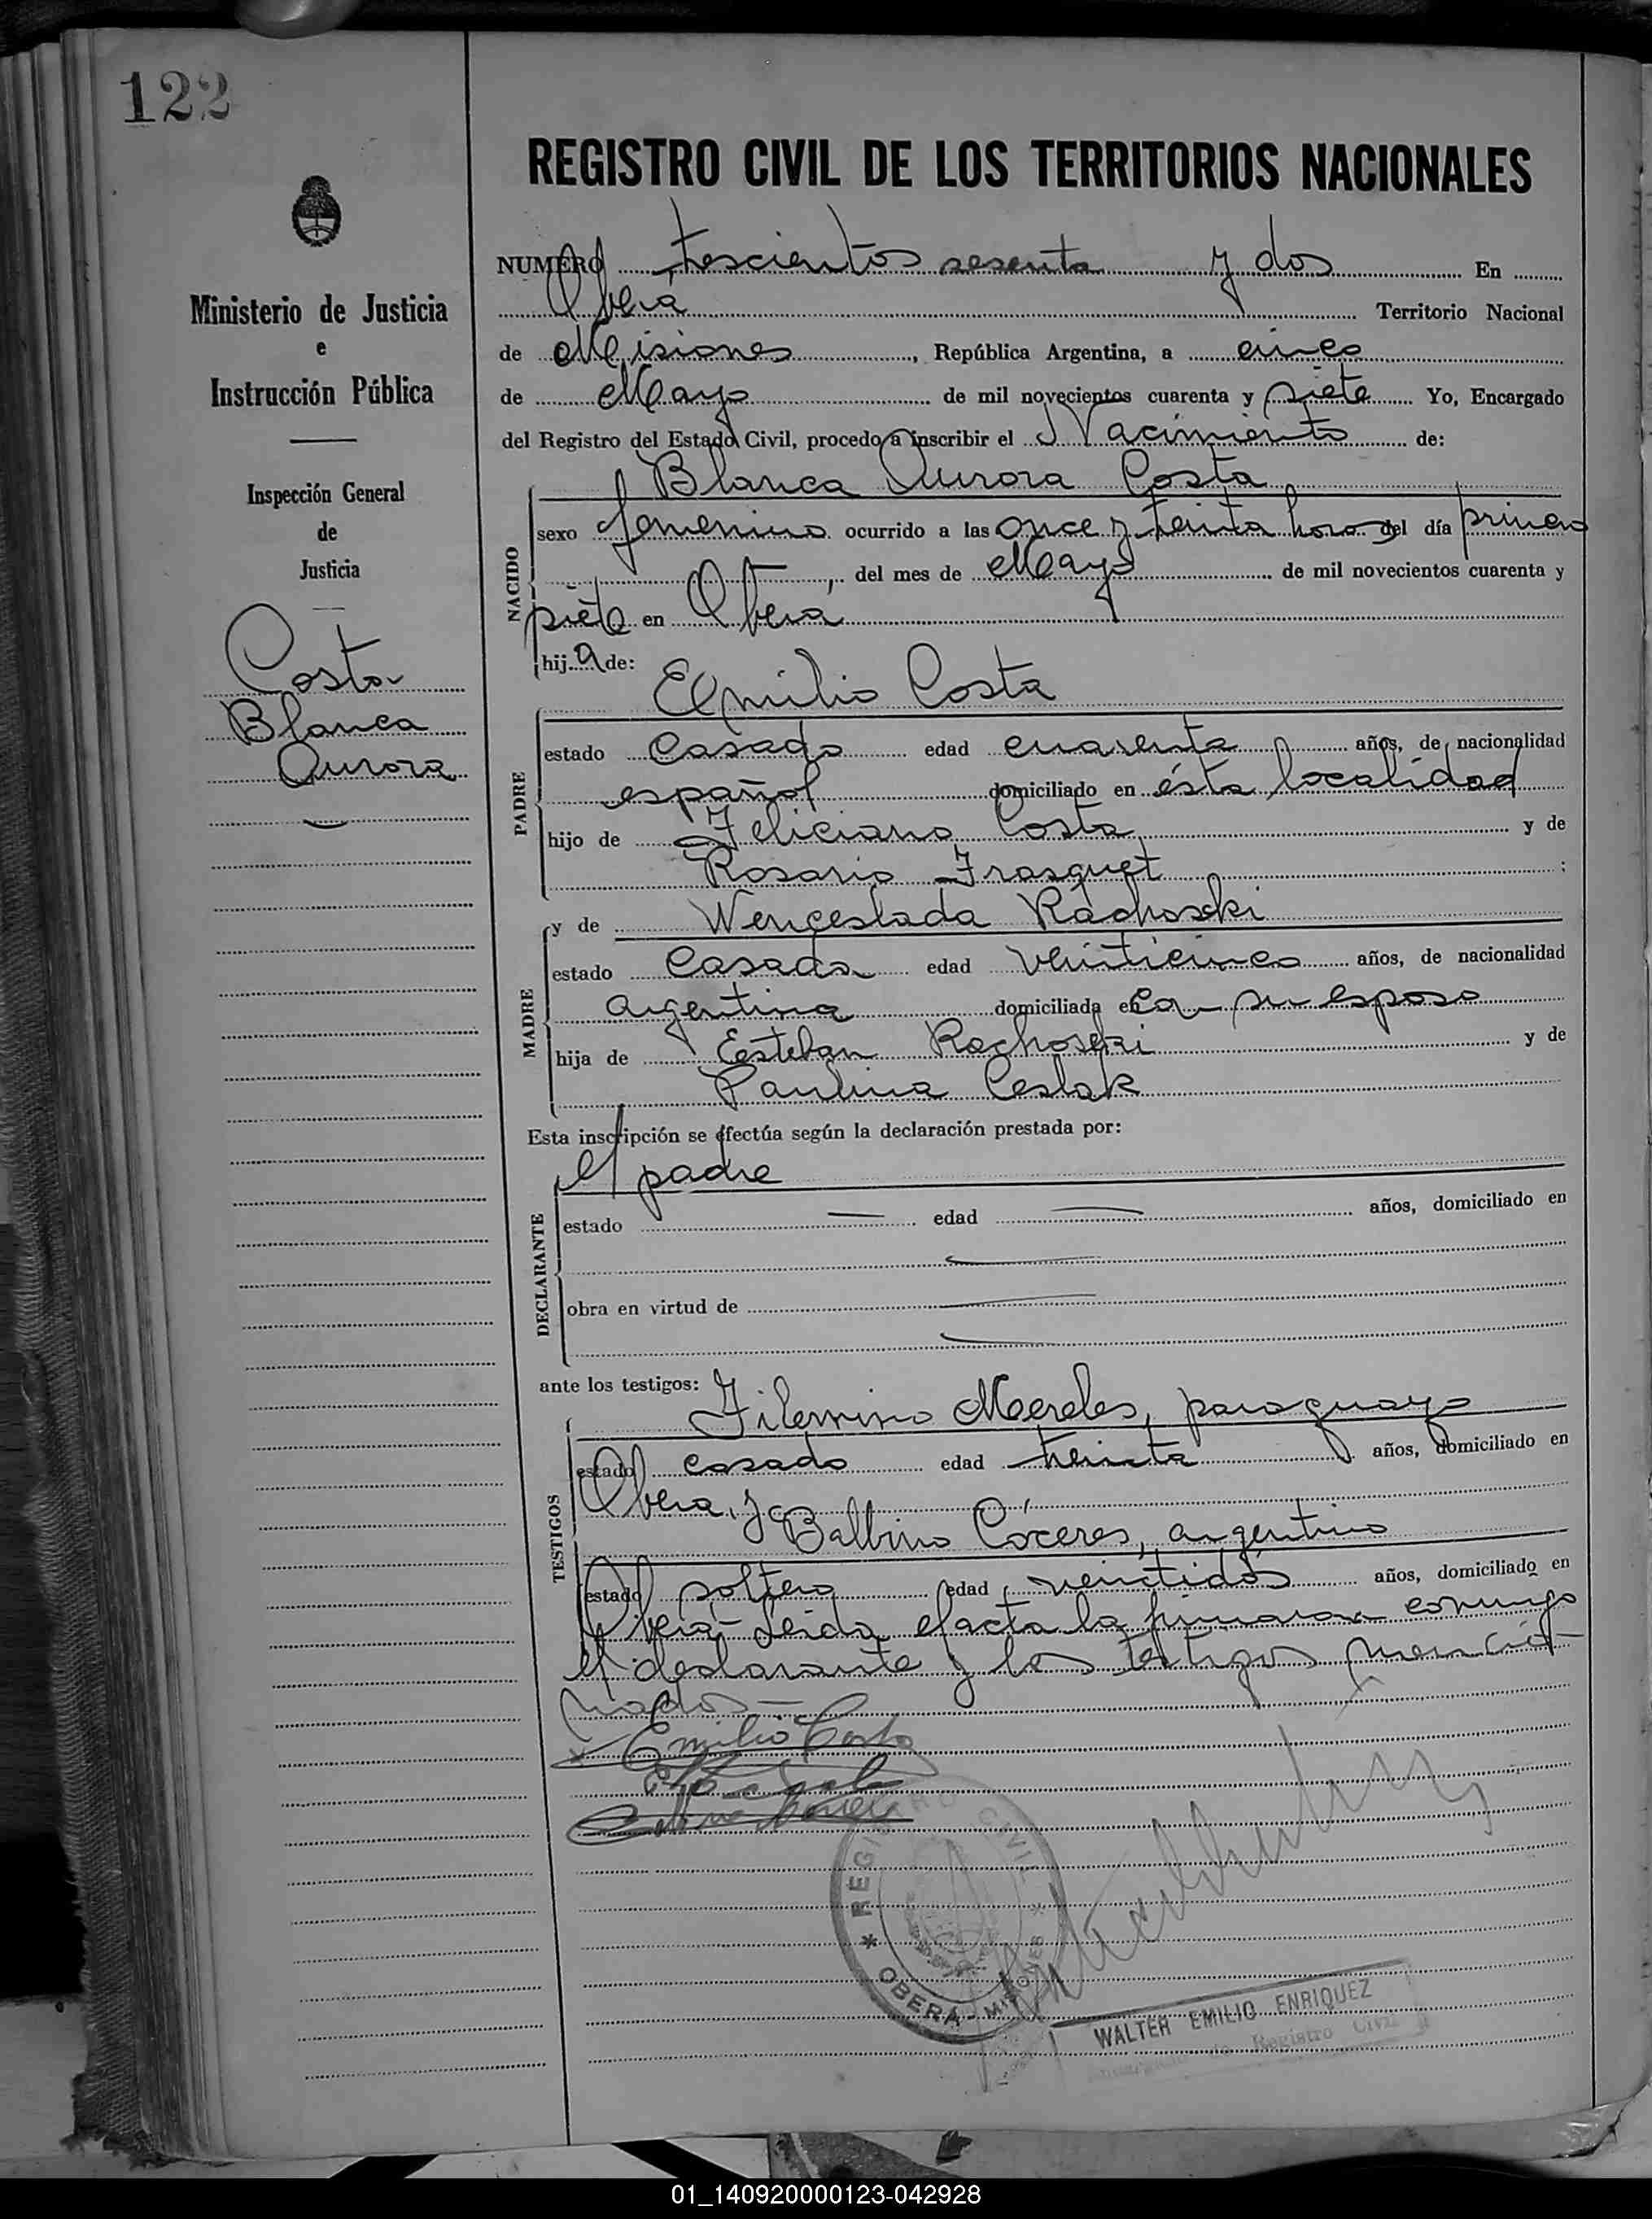 122
REGISTRO CIVIL DE LOS TERRITORIOS NACIONALES
Ministerio de Justicia
e
Instrucción Pública
Inspección General
de
Justicia
Costa
Blanca
Aurora
NUMERO trescientos sesenta y dos En
Oberá Territorio Nacional
de Misiones, República Argentina, a cinco
de Mayo de mil novecientos cuarenta y siete Yo, Encargado
del Registro del Estado Civil, procedo a inscribir el Nacimiento de:
Blanca Aurora Costa
NACIDO
sexo femenino ocurrido a las once y treinta horas del día primero
del mes de Mayo de mil novecientos cuarenta y
siete en Oberá
hija de:
Emilio Costa
PADRE
estado Casado edad cuarenta años, de nacionalidad
español domiciliado en ésta localidad
hijo de Feliciano Costa y de
Rosario Frasquet;
MADRE
y de Wenceslada Rachoski
estado Casada edad veinticinco años, de nacionalidad
argentina domiciliada en con su esposo
hija de Esteban Rachoski y de
Paulina Ceslak
Esta inscripción se efectúa según la declaración prestada por:
el padre
DECLARANTE
estado — edad — años, domiciliado en
obra en virtud de
ante los testigos: Filemino Mereles, paraguayo
TESTIGOS
estado casado edad treinta años, domiciliado en
Oberá, y
Balbino Cáceres, argentino
estado soltero edad veintidós años, domiciliado en
Oberá- Leida el acta la firmaron conmigo
el declarante y los testigos mencio-
nados —
Emilio Costa
REGISTRO CIVIL
OBERÁ - MISIONES
WALTER EMILIO ENRIQUEZ
Encargado de Registro Civil
01_140920000123-042928